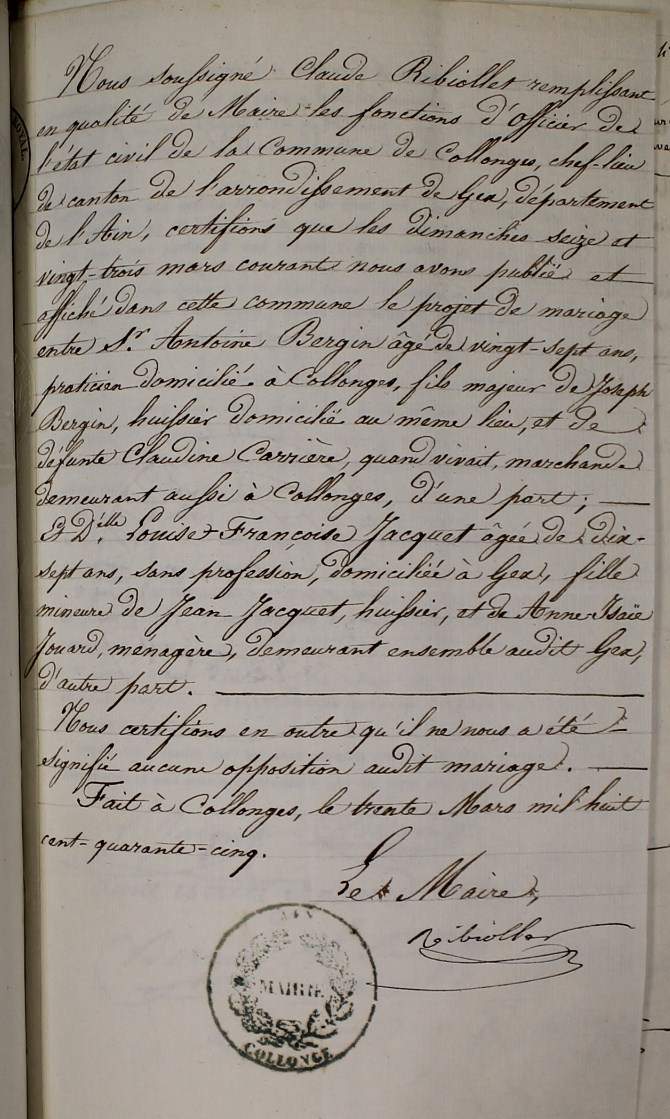 Nous soussigné Claude Ribiollet remplissant
en qualité de Maire les fonctions d'officier de
l'état civil de la Commune de Collonges, chef-lieu
de canton de l'arrondissement de Gex, département
de l'Ain, certifions que les dimanches seize et
vingt-trois mars courant nous avons publié et
affiché dans cette commune le projet de mariage
entre Sr. Antoine Bergin âgé de vingt-sept ans,
praticien domicilié à Collonges, fils majeur de Joseph
Bergin, huissier domicilié au même lieu, et de
défunte Claudine Carrière, quand vivait, marchande
demeurant aussi à Collonges, d'une part;
Et Dlle Louise Françoise Jacquet âgée de dix-
sept ans, sans profession, domiciliée à Gex, fille
mineure de Jean Jacquet, huissier, et de Anne Isaïe
Jouard, menagère, demeurant ensemble audit Gex,
d'autre part.
Nous certifions en outre qu'il ne nous a été
signifié aucune opposition audit mariage.
Fait à Collonges, le trente Mars mil huit
cent-quarante-cinq.
Le Maire,
Ribiollet
AIN
MAIRIE
COLLONGE
ROYAL